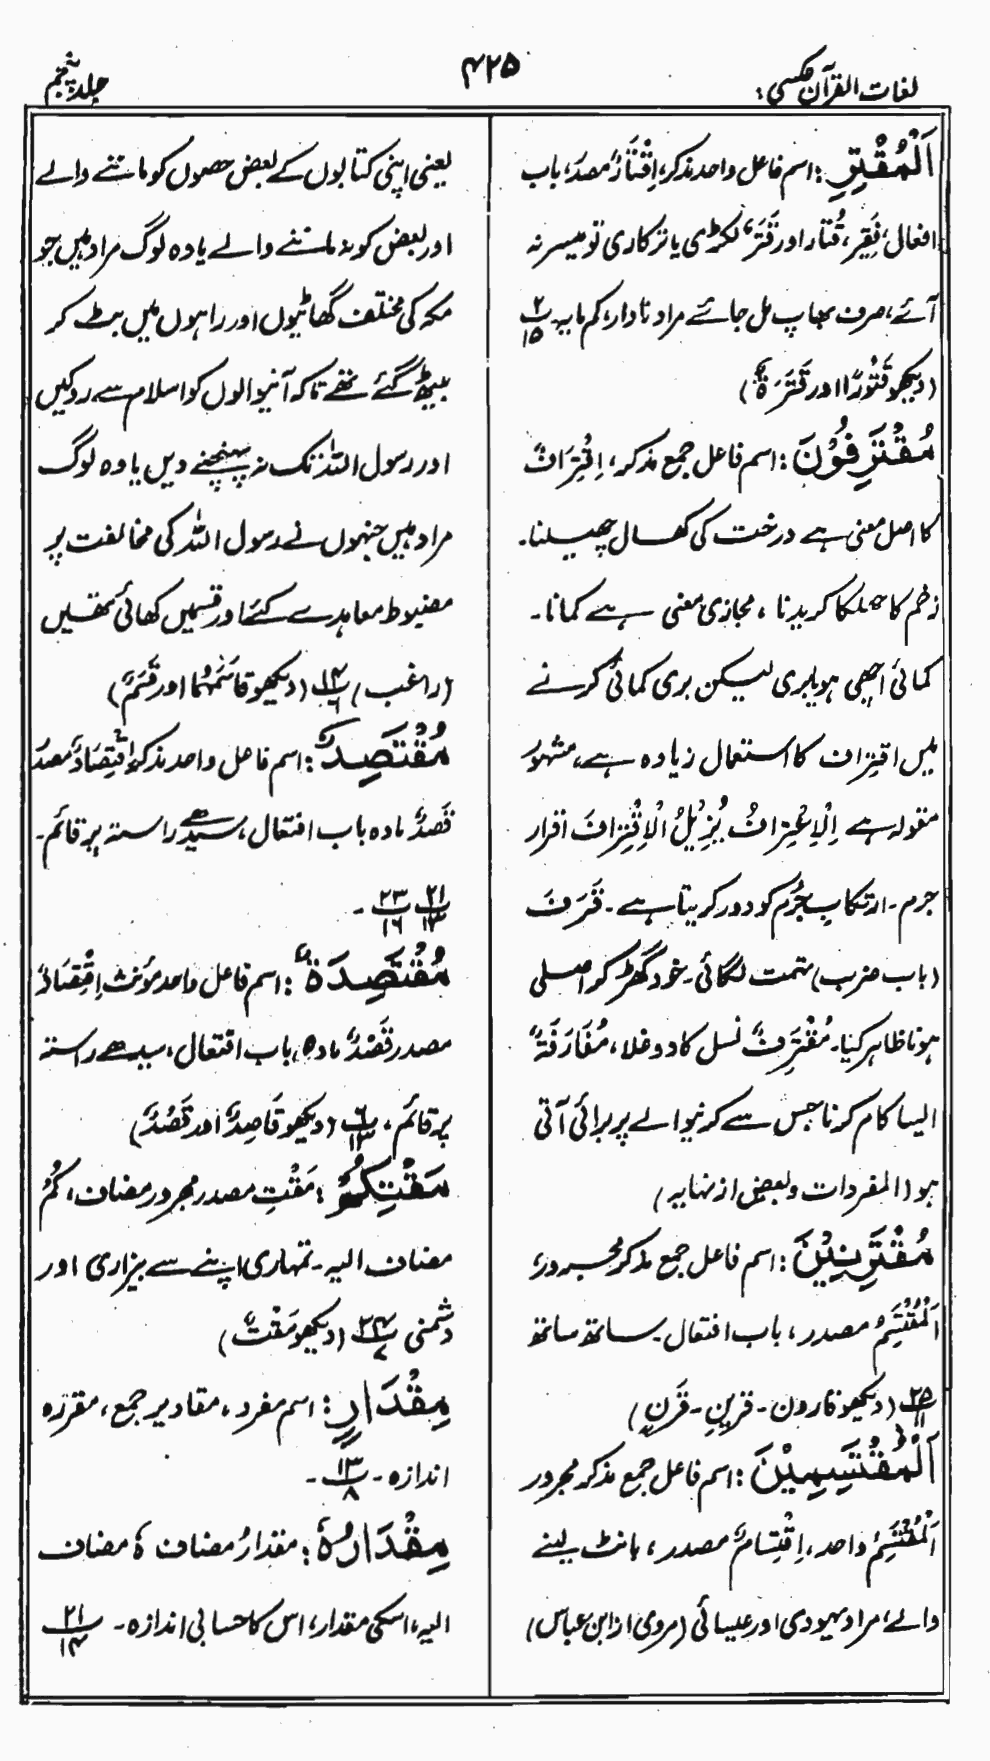 لغات القرآن عکسی :
۴۲۵
جلد پنجم
اَلْمُقْتِرِ : اسم فاعل واحد مذکر، اِقْتَارٌ مصدر، باب
افعال، فَقِر، قُتار اور قَتَرَ، لکڑی یا ترکاری تو میسر نہ
آئے، صرف بھاپ مل جائے مراد نادار، کم مایہ ۲/۱۵
(دیکھو قَتُورًا اور قَتَرَۃٌ)
مُقْتَرِفُوْنَ : اسم فاعل جمع مذکر، اِقْتِرَافٌ
کا اصل معنی ہے درخت کی کھال چھیلنا۔
زخم کا چھلکا کریدنا ، مجازی معنی ہے کمانا ۔
کمائی اچھی ہو یا بری لیکن بری کمائی کرنے
میں اقتراف کا استعمال زیادہ ہے، مشہور
مقولہ ہے اِلْاِعْتِرَافُ يُزِيْلُ الْاِقْتِرَافَ اقرار
جرم ۔ ارتکابِ جُرم کو دور کر دیتا ہے ۔ قَرَفَ
(باب ضرب) تہمت لگائی۔ خود گھڑ کر اصلی
ہونا ظاہر کیا۔ مُقْتَرِفٌ نسل کا دوغلا، مُقَارَفَۃٌ
ایسا کام کرنا جس سے کرنیوالے پر برائی آتی
ہو (المفردات و بعض از نہایہ)
مُقْتَرِنِيْنَ : اسم فاعل جمع مذکر مجرور،
اَلْمُقْتَسِمُ مصدر ، باب افتعال۔ ساتھ ساتھ
۲۵/۱۱ (دیکھو قارون ۔ قرین ۔ قَرن)
اَلْمُقْتَسِمِيْنَ : اسم فاعل جمع مذکر مجرور
اَلْمُقْتَسِمُ واحد، اِقْتِسَامٌ مصدر ، بانٹ لینے
والے، مراد یہودی اور عیسائی (مروی از ابن عباس)
یعنی اپنی کتابوں کے بعض حصوں کو ماننے والے
اور بعض کو نہ ماننے والے یا وہ لوگ مراد ہیں جو
مکہ کی مختلف گھاٹیوں اور راہوں میں بٹ کر
بیٹھ گئے تھے تاکہ آنیوالوں کو اسلام سے روکیں
اور رسول اللہ تک نہ پہنچنے دیں یا وہ لوگ
مراد ہیں جنہوں نے رسول اللہ کی مخالفت پر
مضبوط معاہدے کئے اور قسمیں کھائی تھیں
(راغب) ۱۴/۶ (دیکھو قَاسَمَهُمَا اور قَسَمٌ)
مُقْتَصِدٌ : اسم فاعل واحد مذکر اِقْتِصَادٌ مصدر
قَصْدٌ مادہ باب افتعال، سیدھے راستہ پر قائم ۔
۲۱/۱۳ ۲۳/۱۶ ۔
مُقْتَصِدَۃٌ : اسم فاعل واحد مؤنث اِقْتِصَادٌ
مصدر قَصْدٌ مادہ، باب افتعال، سیدھے راستہ
پر قائم ، ۶/۱۳ (دیکھو قَاصِدٌ اور قَصْدٌ)
مَقْتِكُمْ : مَقْتِ مصدر مجرور مضاف، كُمْ
مضاف الیہ۔ تمہاری اپنے سے بیزاری اور
دشمنی ۲۴/۷ (دیکھو مَقْتٌ)
مِقْدَارٍ : اسم مفرد، مقادیر جمع، مقررہ
اندازہ ۔ ۱۳/۸ ۔
مِقْدَارُہٗ : مقدارُ مضاف ہٗ مضاف
الیہ، اسکی مقدار، اس کا حسابی اندازہ ۔ ۲۱/۱۴